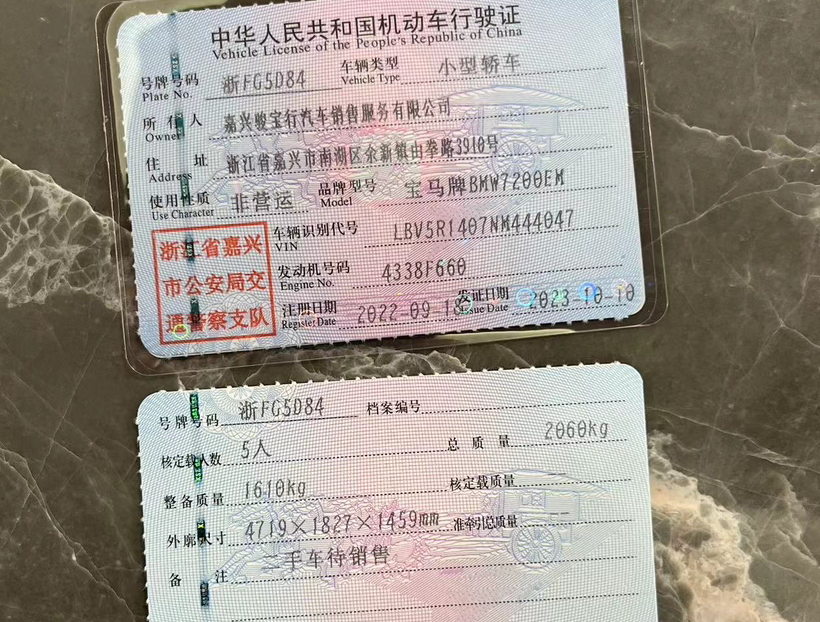 中华人民共和国机动车行驶证
Vehicle License of the People's Republic of China
号牌号码 浙FG5D84 车辆类型 小型轿车
Plate No. Vehicle Type
所有人 嘉兴骏宝行汽车销售服务有限公司
Owner
住址 浙江省嘉兴市南湖区余新镇由拳路3910号
Address
使用性质 非营运 品牌型号 宝马牌BMW7200EM
Use Character Model
浙江省嘉兴
市公安局交
通警察支队
车辆识别代号 LBV5R1407NM444047
VIN
发动机号码 4338F660
Engine No.
注册日期 2022-09-1 发证日期 2023-10-10
Register Date Issue Date
号牌号码 浙FG5D84 档案编号
核定载人数 5人 总质量 2060kg
整备质量 1610kg 核定载质量
外廓尺寸 4719×1827×1459mm 准牵引总质量
备注 二手车待销售